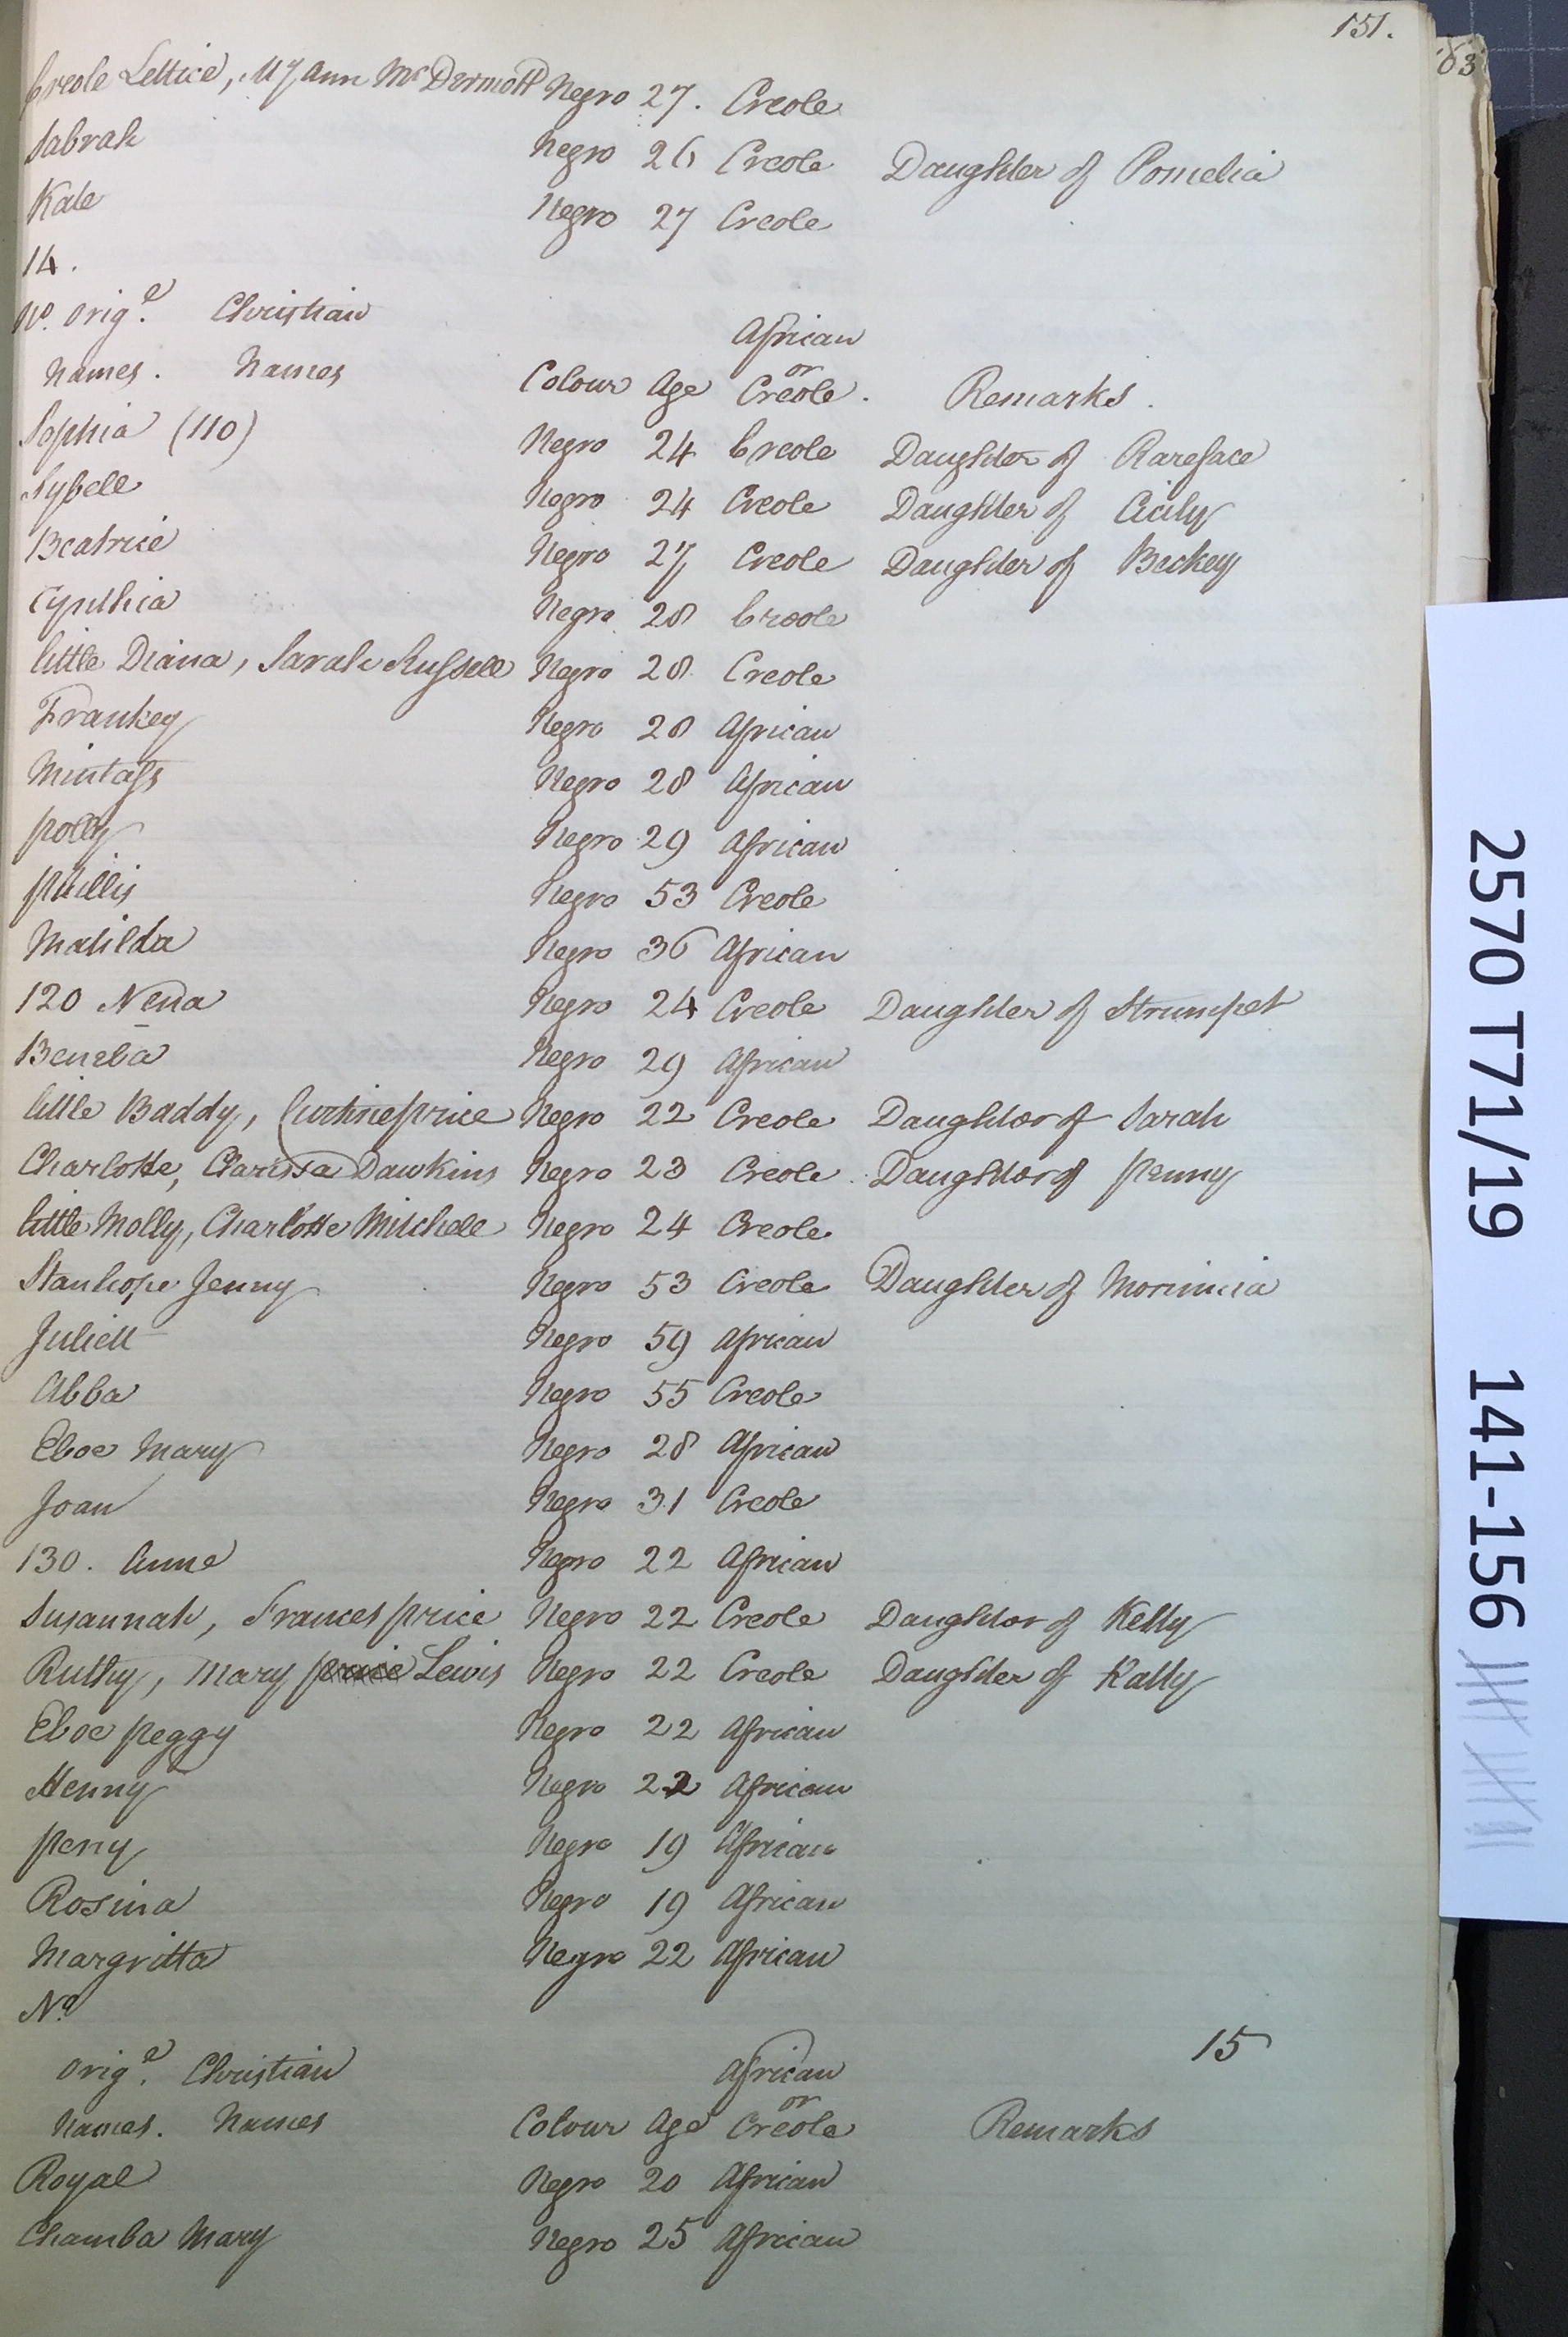 151.
63
Creole Lettice, My Ann McDermott Negro 27. Creole
Sabrah Negro 26 Creole Daughter of Pomelia
Kate Negro 27 Creole
14.
No. Orige. Christian African
Names. Names Colour Age or Creole. Remarks.
Sophia (110) Negro 24 Creole Daughter of Rareface
Sybell Negro 24 Creole Daughter of Cicily
Beatrice Negro 27 Creole Daughter of Beckey
Cynthia Negro 28 Creole
little Diana, Sarah Russell Negro 28 Creole
Frankey Negro 28 African
Mintass Negro 28 African
polly Negro 29 African
phillis Negro 53 Creole
Matilda Negro 36 African
120 Nena Negro 24 Creole Daughter of Strumpet
Beneba Negro 29 African
little Baddy, price Negro 22 Creole Daughter of Sarah
Charlotte, Clarissa Dawkins Negro 23 Creole Daughter of penny
little Molly, Charlotte Mitchell Negro 24 Creole
Stanhope Jenny Negro 53 Creole Daughter of Morimia
Juliett Negro 59 African
Abba Negro 55 Creole
Eboe Mary Negro 28 African
Joan Negro 31 Creole
130. Anne Negro 22 African
Susannah, Frances price Negro 22 Creole Daughter of Kelly
Ruthy, Mary price Lewis Negro 22 Creole Daughter of Kally
Eboe peggy Negro 22 African
Henny Negro 22 African
perry Negro 19 African
Rosina Negro 19 African
Margritta Negro 22 African
No.
15
Orige. Christian African
Names. Names Colour Age or Creole Remarks
Royal Negro 20 African
Chamba Mary Negro 25 African
2570 T71/19 141-156